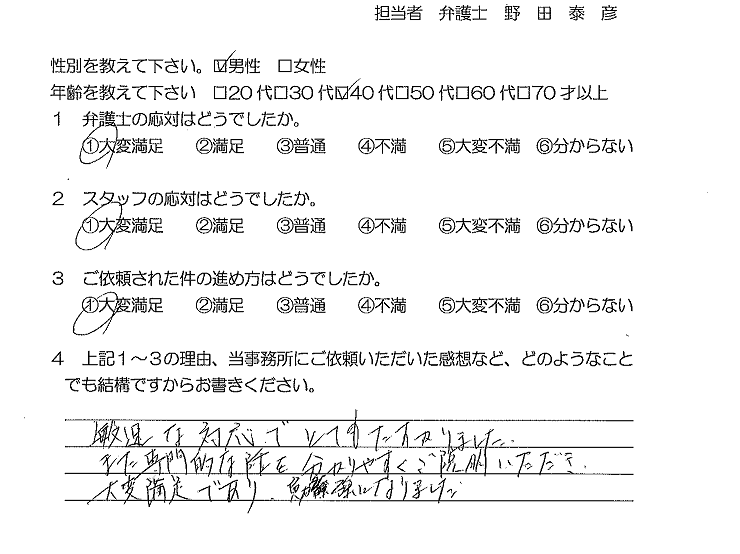 担当者　弁護士　野　田　泰　彦
性別を教えて下さい。☑男性　□女性
年齢を教えて下さい　□20代□30代☑40代□50代□60代□70才以上
１　弁護士の応対はどうでしたか。
①大変満足　②満足　③普通　④不満　⑤大変不満　⑥分からない
２　スタッフの応対はどうでしたか。
①大変満足　②満足　③普通　④不満　⑤大変不満　⑥分からない
３　ご依頼された件の進め方はどうでしたか。
①大変満足　②満足　③普通　④不満　⑤大変不満　⑥分からない
４　上記１～３の理由、当事務所にご依頼いただいた感想など、どのようなこと
でも結構ですからお書きください。
敏速な対応でとてもたすかりました。
また専門的な話を分かりやすくご説明いただき、
大変満足であり、勉強になりました